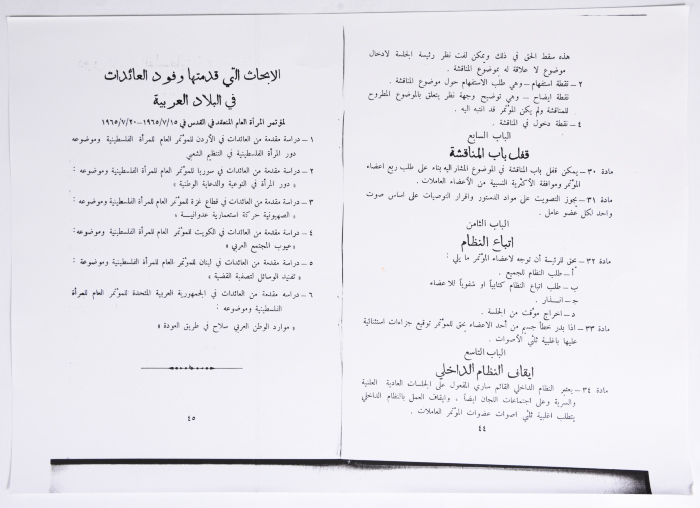 هذه سقط الحق في ذلك ويمكن لفت نظر رئيسة الجلسة لادخال
موضوع لا علاقة له بموضوع المناقشة .
٢ – نقطة استفهام – وهي طلب الاستفهام حول موضوع المناقشة .
نقطة ايضاح – وهي توضيح وجهة نظر يتعلق بالموضوع المطروح
للمناقشة ولم يكن المؤتمر قد انتبه اليه .
٤ – نقطة دخول في المناقشة .
الباب السابع
قفل باب المناقشة
مادة ٣٠ – يمكن قفل باب المناقشة في الموضوع المشار اليه بناء على طلب ربع اعضاء
المؤتمر وموافقة الأكثرية النسبية من الأعضاء العاملات .
مادة ٣١ – يجوز التصويت على مواد الدستور واقرار التوصيات على اساس صوت
واحد لكل عضو عامل .
الباب الثامن
اتباع النظام
مادة ٣٢ – يحق للرئيسة أن توجه لاعضاء المؤتمر ما يلي :
أ – طلب النظام للجميع .
ب – طلب اتباع النظام كتابياً او شفوياً للاعضاء
ج – انذار .
د – اخراج موقت من الجلسة .
مادة ٣٣ – اذا بدر خطأ جسيم من أحد الاعضاء يحق للمؤتمر توقيع جزاءات استثنائية
عليها باغلبية ثلثي الأصوات .
الباب التاسع
ايقاف النظام الداخلي
مادة ٣٤ – يعتبر النظام الداخلي القائم ساري المفعول على الجلسات العادية العلنية
والسرية وعلى اجتماعات اللجان ايضاً ، وايقاف العمل بالنظام الداخلي
يتطلب اغلبية ثلثي اصوات عضوات المؤتمر العاملات .
٤٤
الابحاث التي قدمتها وفود العائدات
في البلاد العربية
لمؤتمر المرأة العام المنعقد في القدس في ١٩٦٥/٧/١٥–١٩٦٥/٧/٢٠
١ – دراسة مقدمة من العائدات في الأردن للمؤتمر العام للمرأة الفلسطينية وموضوعه
دور المرأة الفلسطينية في التنظيم الشعبي
٢ – دراسة مقدمة من العائدات في سوريا للمؤتمر العام للمرأة الفلسطينية وموضوعه :
« دور المرأة في التوعية والدعاية الوطنية »
٣ – دراسة مقدمة من العائدات في قطاع غزة للمؤتمر العام للمرأة الفلسطينية وموضوعه :
« الصهيونية حركة استعمارية عدوانية »
٤ – دراسة مقدمة من العائدات في الكويت للمؤتمر العام للمرأة الفلسطينية وموضوعه:
« عيوب المجتمع العربي »
٥ – دراسة مقدمة من العائدات في لبنان للمؤتمر العام للمرأة الفلسطينية وموضوعة :
« تفنيد الوسائل لتصفية القضية »
٦ – دراسه مقدمة من العائدات في الجمهورية العربية المتحدة للمؤتمر العام للمرأة
الفلسطينية وموضوعه :
« موارد الوطن العربي سلاح في طريق العودة »
٤٥